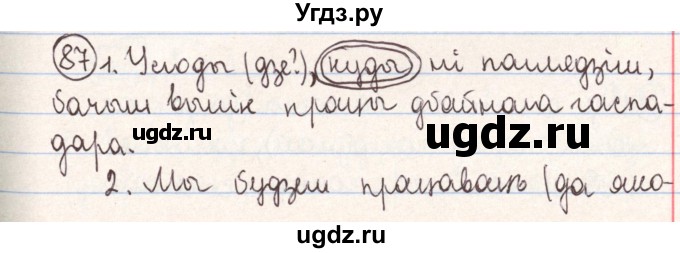 Угдз.ру
87 1. Усюды (дзе?), куды ні паглядзім,
бачым вынік працы дбайнага гаспа-
дара.
ugdz.ru ugdz.ru
2. Мы будзем працаваць (да яко-
ugdz.ru